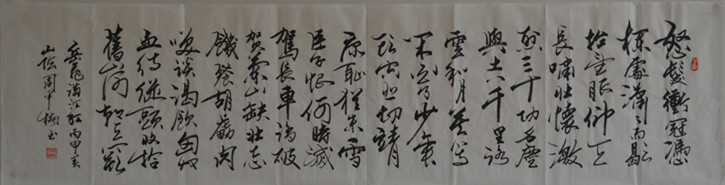 怒髮衝冠憑
欄處瀟瀟雨歇
抬望眼仰天
長嘯壯懷激
烈三十功名塵
與土八千里路
雲和月莫等
閑白了少年
頭空悲切靖
康恥猶未雪
臣子恨何時滅
駕長車踏破
賀蘭山缺壯志
饑餐胡虜肉
笑談渴飲匈奴
血待從頭收拾
舊山河朝天闕
岳飛滿江紅丙申